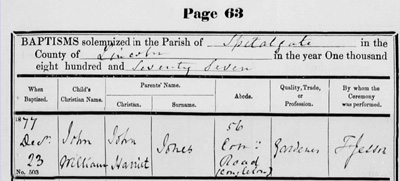 Page 63
BAPTISMS solemnized in the Parish of Spitalgate in the
County of Lincoln in the year One thousand
eight hundred and Seventy Seven
When Baptized.
Child's Christian Name.
Parent's Name.
Christian.
Surname.
Abode.
Quality, Trade, or Profession.
By whom the Ceremony was performed.
1877
Decr.
23
No. 503
John
William
John
Harriet
Jones
56
Road
Gardener